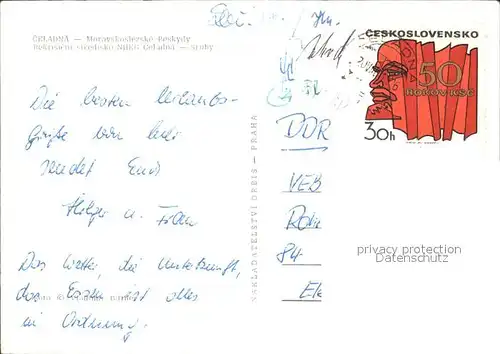 ČELADNÁ — Moravskoslezské Beskydy
Rekreační středisko NHKG Čeladná —
Die besten Urlaubs-
Grüße von hier
sendet Euch
Holger u.
Das Wetter, die Unterkunft,
das Essen ist alles
in Ordnung.
NAKLADATELSTVÍ ORBIS — PRAHA
DDR
VEB
ČESKOSLOVENSKO
50
ROKOV KSČ
30h
privacy protection
Datenschutz